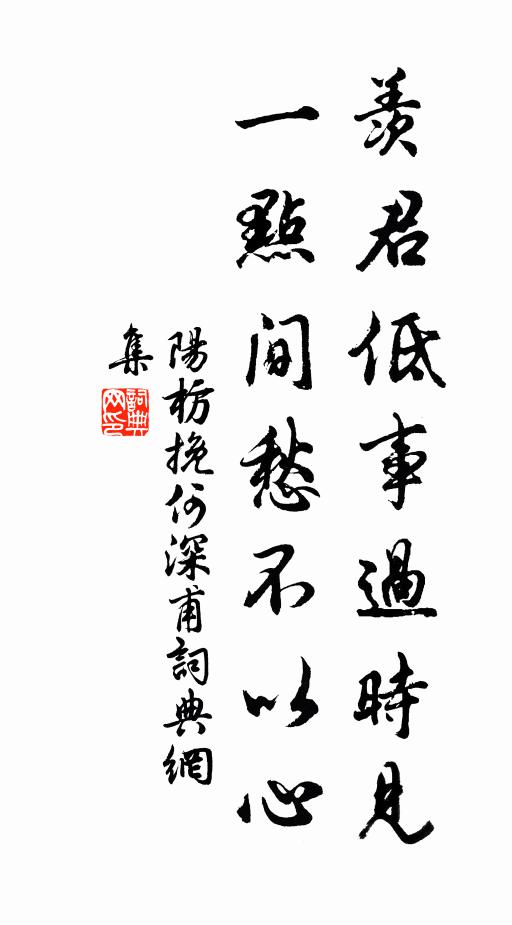 羨君低事過時見
一點間愁不以心
陽枋挽何深甫詞典網
集
詞典網印